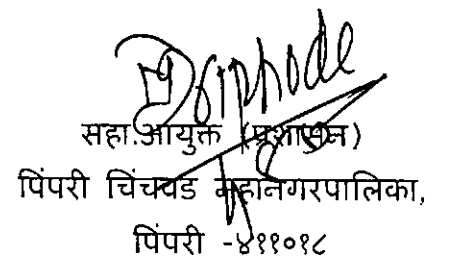 सहा.आयुक्त (प्रशासन)
पिंपरी चिंचवड महानगरपालिका,
पिंपरी -४११०१८